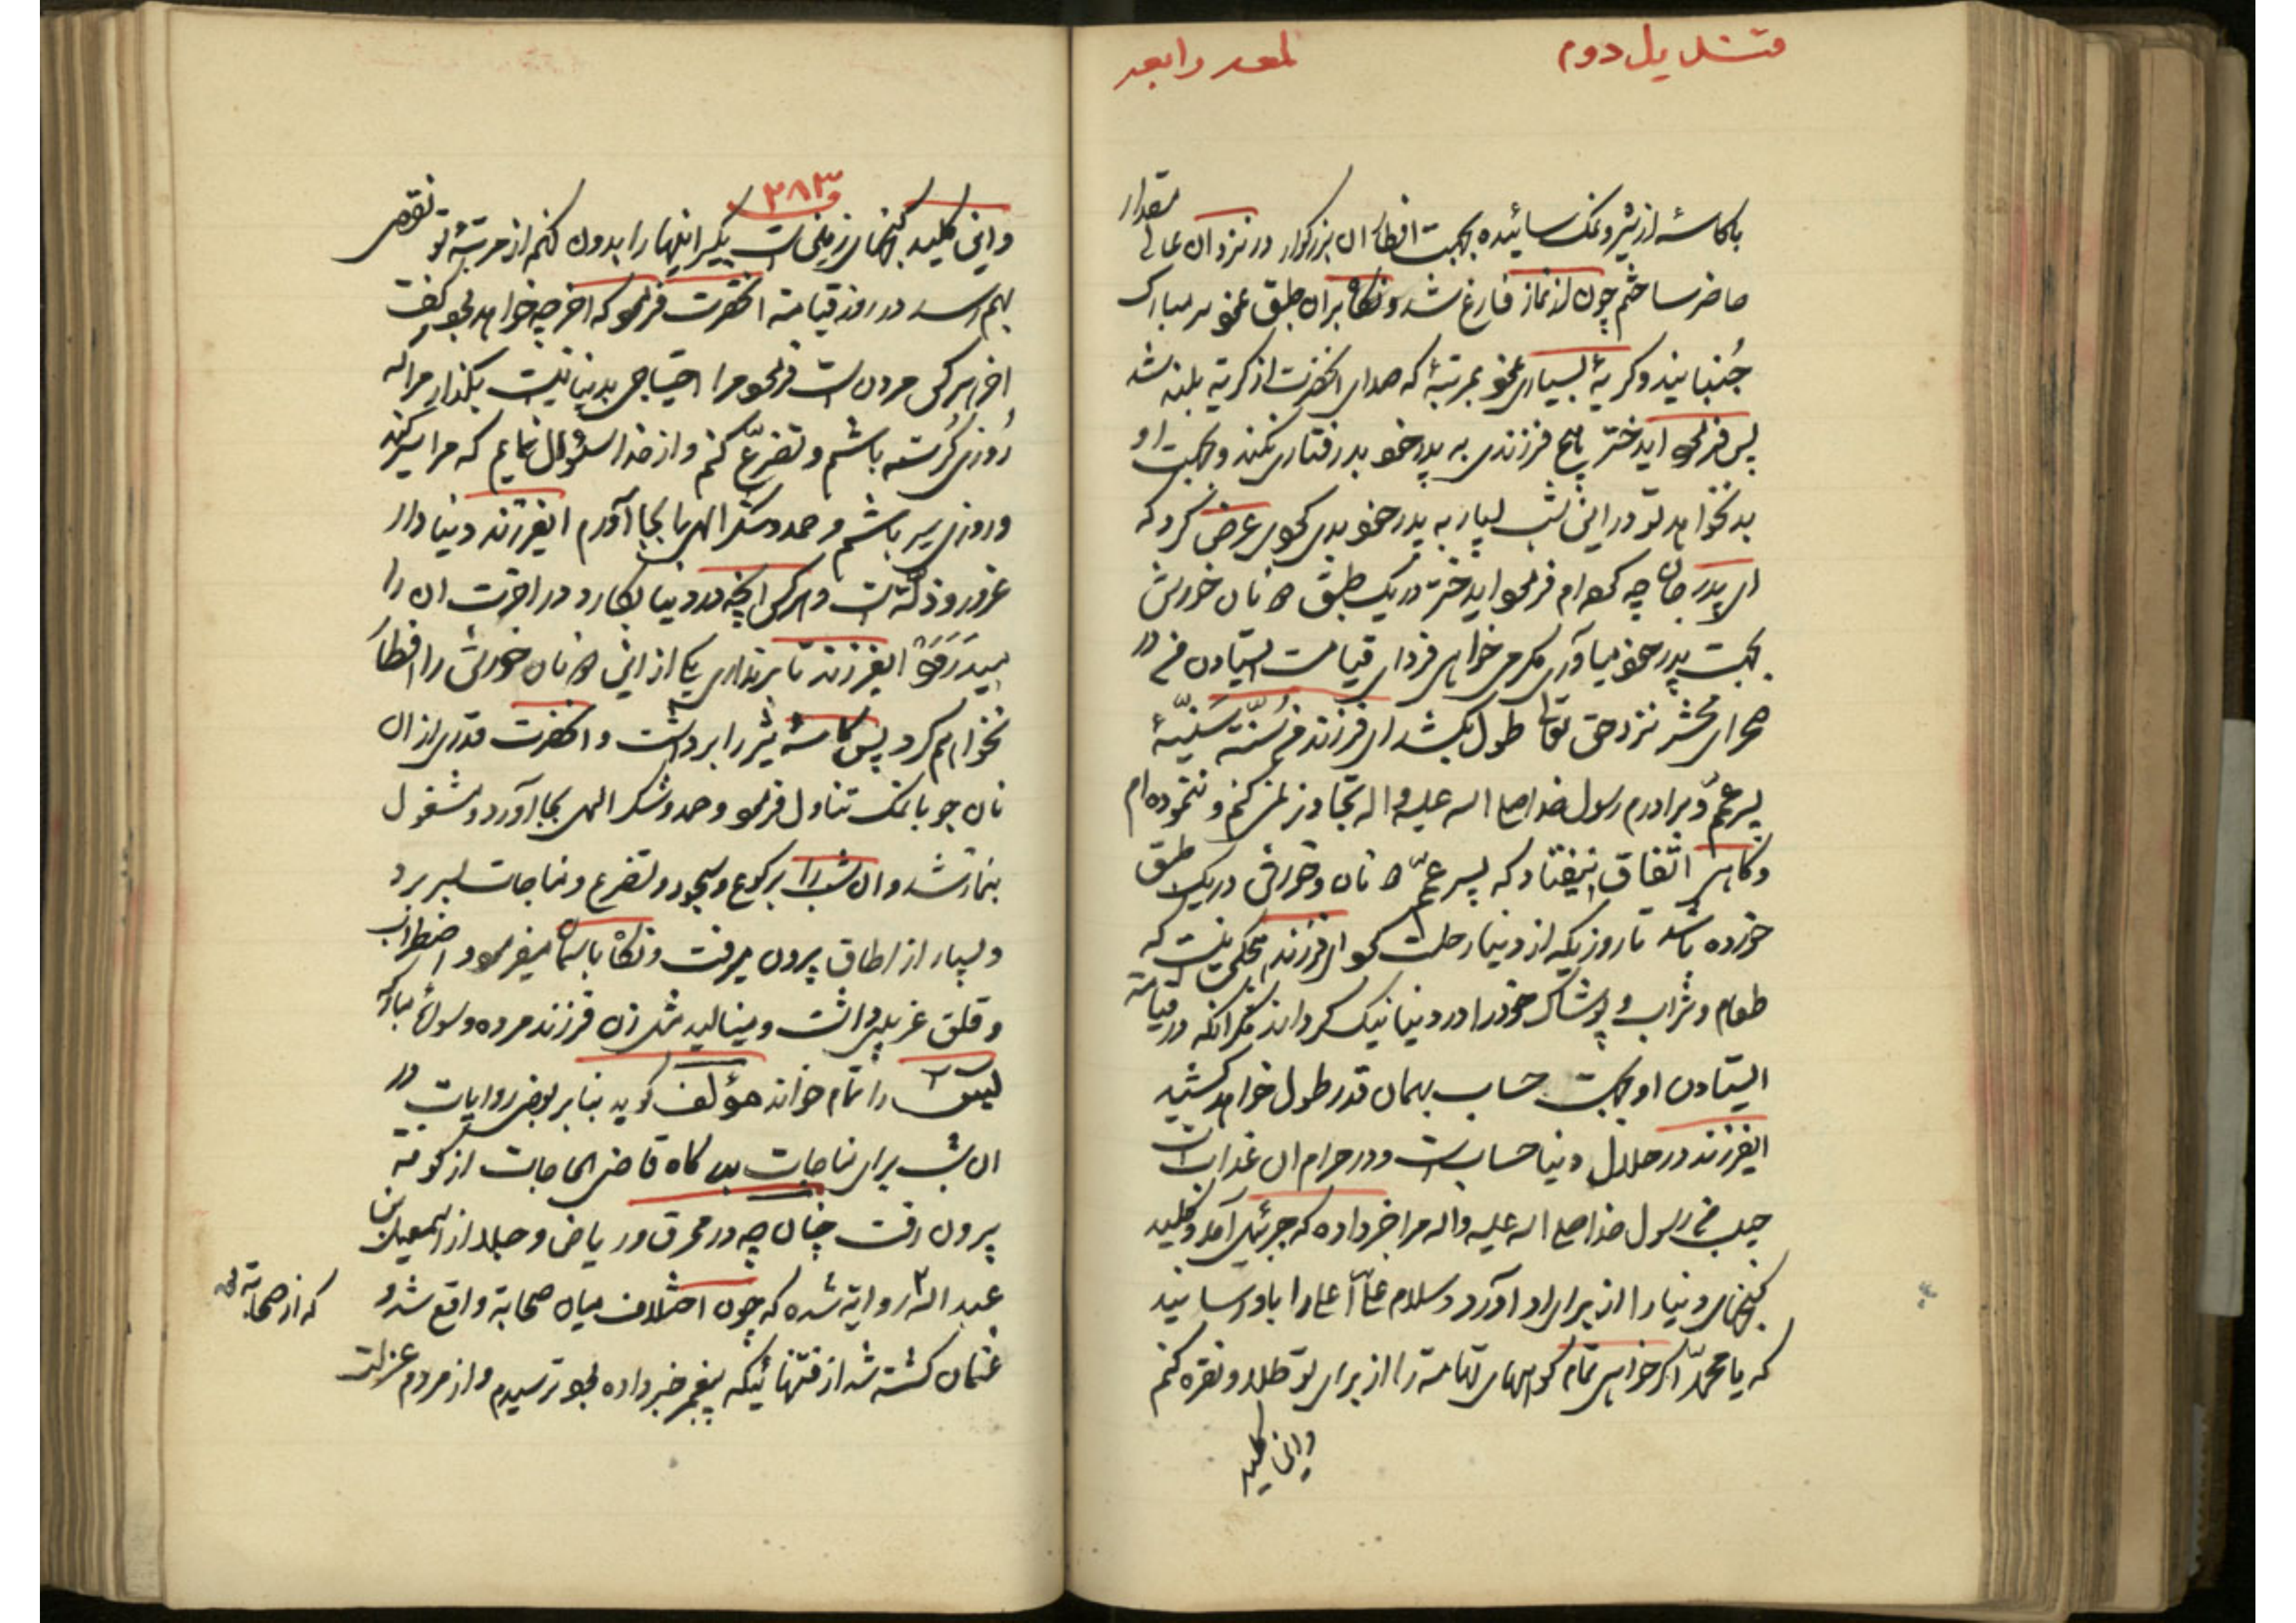 قندیل دوم لمعه رابعه
با کاسهٔ از شیر و نمک سائیده بجهت افطار ان بزرکوار در نزد ان عالی مقدار
حاضر ساختم چون از نماز فارغ شد و نکاه بران طبق نمود سر مبارک
جُنبانیند و کریهٔ بسیاری نمود بمرتبهٔ که صدای انحضرت از کریه بلند شد
پس فرمود ایدختر هیچ فرزندی به پدر خود بد رفتاری نکند و بجهت او
بد نخواهد تو در این شب بسیار به پدر خود بدی کردی عرض کرد که
ای پدر جان چه کرده ام فرمود ایدختر در یک طبق ۲ نان خورش
بجهت پدر خود میاوری مکر می خواهی فردای قیامت ایستادن من در
صحرای محشر نزد حق تعالی طول بکشد ای فرزند من سُنّت سَنیّهٔ
پسر عمّ و برادرم رسول خدا صلی الله علیه و اله تجاوز نمی کنم و ننموده ام
و کاهی اتفاق نیفتاد که پسر عمّم ۲ نان و خورش در یک طبق
خورده باشد تا روزیکه از دنیا رحلت کرد ای فرزند هیچکس نیست که
طعام و شراب و پوشاک خود را در دنیا نیک کرداند مکر انکه در قیامة
ایستادن او بجهت حساب بهمان قدر طول خواهد کشید
ایفرزند در حلال دنیا حسابست و در حرام ان عذابست
حبیب من رسول خدا صلی الله علیه واله مرا خبر داده که جبرئیل آمد و کلید
کنجهای دنیا را از برای او آورد و سلام علیّ اعلی را باو رسانید
که یا محمّد اکر خواهی تمام کوههای تهامه را از برای تو طلا و نقره کنم
و این کلید
۲۸۳
و این کلید کنجهای زمین است بکیر اینها را بدون کنم از مرتبهٔ تو نقصی
بهم رسد در روز قیامة انحضرت فرمود که اخر چه خواهد بود کفت
اخر هر کس مردن است فرمود مرا احتیاجی بدنیا نیست بکذار مرا که
رُوزی کُرسنه باشم و تضرّع کنم و از خدا سئوال نمایم که مرا سیر کند
و روزی سیر باشم و حمد و شکر الهی را بجا آورم ایفرزند دنیا دار
غرور و ذلّت است و هر کس انچه در دنیا بکارد در اخرت ان را
میدرود ایفرزند تا برنداری یکی از این ۲ نان خورش را افطار
نخواهم کرد پس کاسهٔ شیر را برداشت و انحضرت قدری از ان
نان جو با نمک تناول فرمود و حمد و شکر الهی بجا آورد و مشغول
بنماز شد و ان شب را برکوع و سجود و تضرع و مناجات بسر برد
و بسیار از اطاق بیرون میرفت و نکاه باسمان میفرمود و اضطراب
و قلق غریبی داشت و مینالید مثل زن فرزند مرده و سورهٔ مبارکه
لیس را تمام خواند مؤلف کوید بنابر بعض روایات در
ان شب برای مناجات بدرکاه قاضی الحاجات از کوفة
بیرون رفت چنان چه در محرق و ریاض و جلاء از اسمعیل بن
عبد الله روایة شده که چون اختلاف میان صحابة واقع شد و
که از صحابة
عثمان کشته شد از فتنهائیکه پیغمبر خبر داده بود ترسیدم و از مردم عزلت